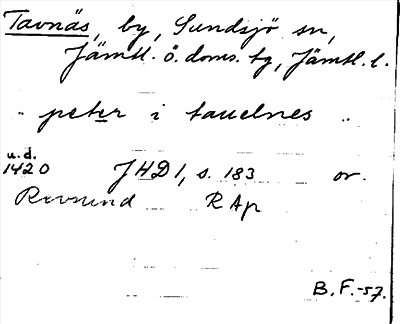 Tavnäs, by, Sundsjö sn,
Jämtl. ö. doms. tg, Jämtl. l.
" peter i tauelnes "
u.d.
1420 JHD 1, s. 183 or.
Revsund R Ap
B. F. -57.